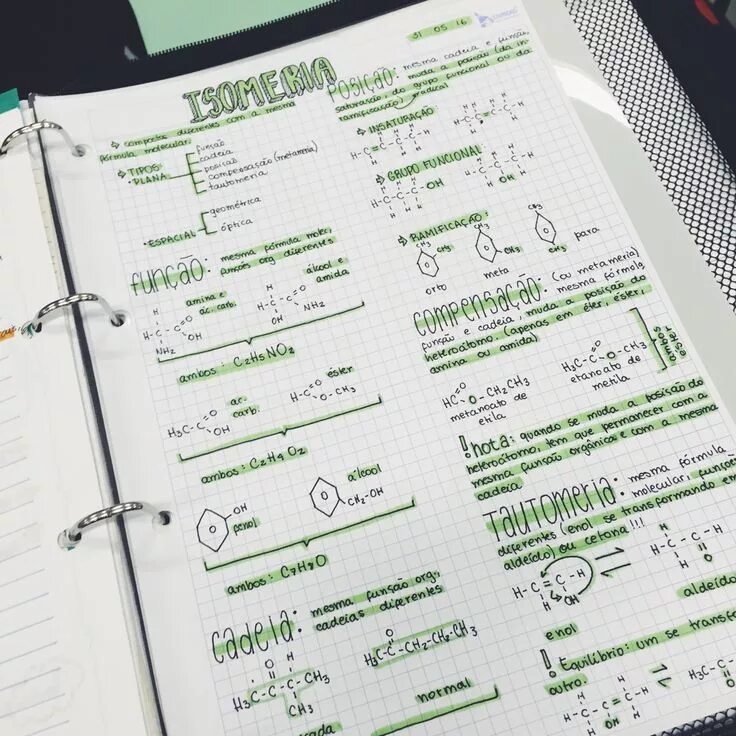 31 05 16
ISOMERIA
→ compostos diferentes com a mesma
fórmula molecular.
→ TIPOS:
• PLANA
função
cadeia
posição
compensação (metameria)
tautomeria
• ESPACIAL
geométrica
óptica
função: mesma fórmula molec,
funções org diferentes
amina e
ác. carb.
álcool e
amida
H-C-C
O
OH
NH₂
H-C-C
O
NH₂
OH
ambos: C₂H₅NO₂
ác.
carb.
H₃C-C
O
OH
éster
H-C
O
O-CH₃
ambos: C₂H₄O₂
OH
fenol
álcool
CH₂-OH
ambos: C₇H₈O
cadeia: mesma função org,
cadeias diferentes
H₃C-C-C-C-H
CH₃
H₃C-C-CH₂-CH₂-CH₃
normal
POSIÇÃO: mesma cadeia e função,
muda a posição (da in-
saturação, do grupo funcional ou da
ramificação) radical
→ INSATURAÇÃO
→ GRUPO FUNCIONAL
OH
OH
→ RAMIFICAÇÃO:
CH₃
CH₃
orto
CH₃
CH₃
meta
CH₃
CH₃
para
compensação: (ou metameria)
mesma fórmula,
função e cadeia, muda a posição do
heteroátomo. (apenas em éter, éster,
amina ou amida)
HC-O-CH₂CH₃
O
metanoato de
etila
H₃C-C-O-CH₃
O
etanoato de
metila
ambos
éster
! nota: quando se muda a posição do
heteroátomo, tem que permanecer com a
mesma função orgânica e com a mesma
cadeia
TAUTOMERIA: mesma fórmula
molecular, funções
diferentes (enol se transformando em
aldeído) ou cetona!!!
H-C=C-H
OH
enol
H-C-C-H
O
aldeído
! Equilíbrio: um se transf
outro.
H-C-C=C-H
OH
H₃C-C-